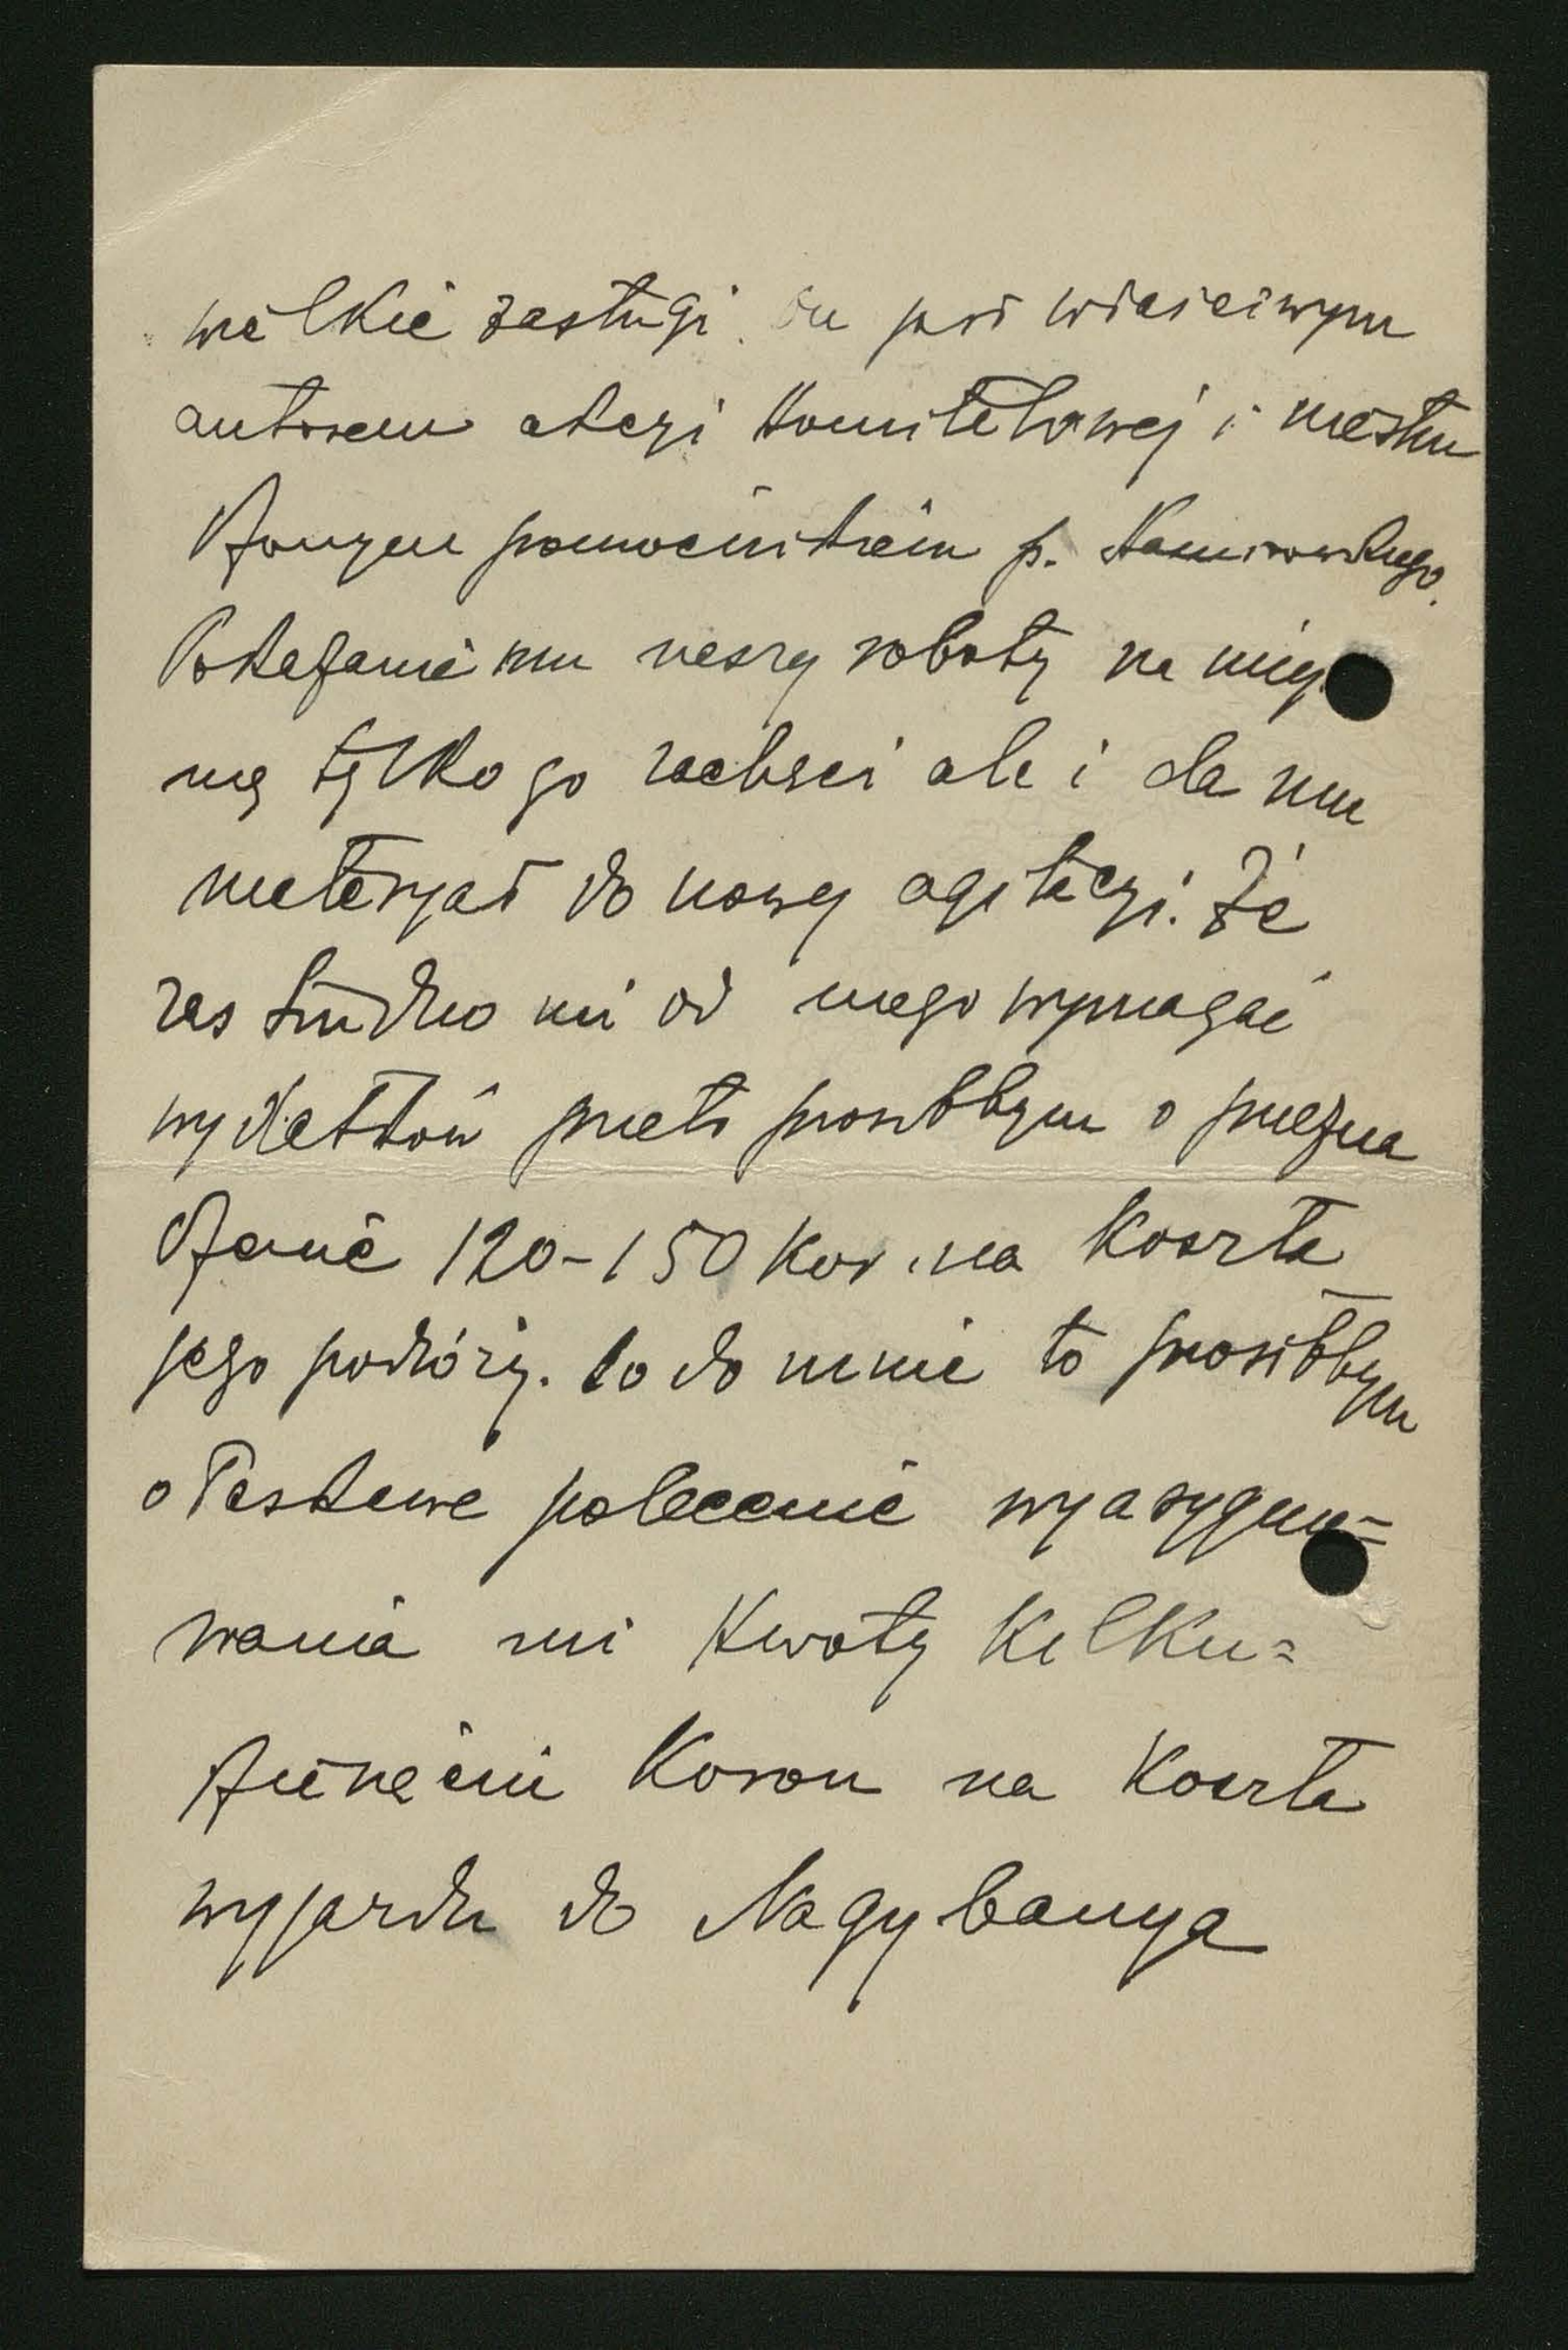 wielkie zasługi. On jest właściwym
autorem akcyi Komitetowej i niestru
dzonym pomocnikiem p.
Pokazanie mu naszej roboty na miej
nie tylko go zachęci ale i da mu
materyał do nowej agitacyi. Że
zaś trudno mi od niego wymagać
wydatków przeto prosiłbym o przezna
czenie 120-150 Kor. na koszta
jego podróży. Co do mnie to prosiłbym
o łaskawe polecenie wyasygno=
wania mi kwoty kilku=
dziesięciu Koron na koszta
wyjazdu do Nagybanya